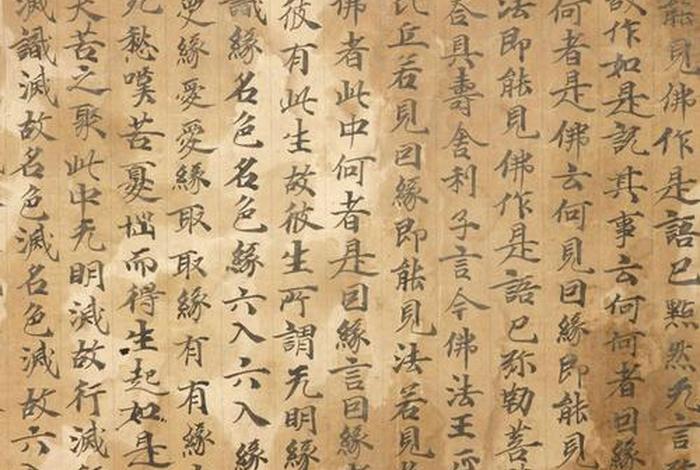 能見佛作是語已黙然无言
故作如是說其事云何何者因緣
何者是佛云何見因緣即能見
法即能見佛作是語已弥勒菩
答具壽舍利子言今佛法王
比丘若見因緣即能見法若見
佛者此中何者是因緣言因緣
彼有此生故彼生所謂无明緣
識緣名色名色緣六入六入緣
受緣愛愛緣取取緣有有緣
死愁嘆苦憂惱而得生起如是
大苦之聚此中无明滅故行滅
滅識滅故名色滅名色滅故六